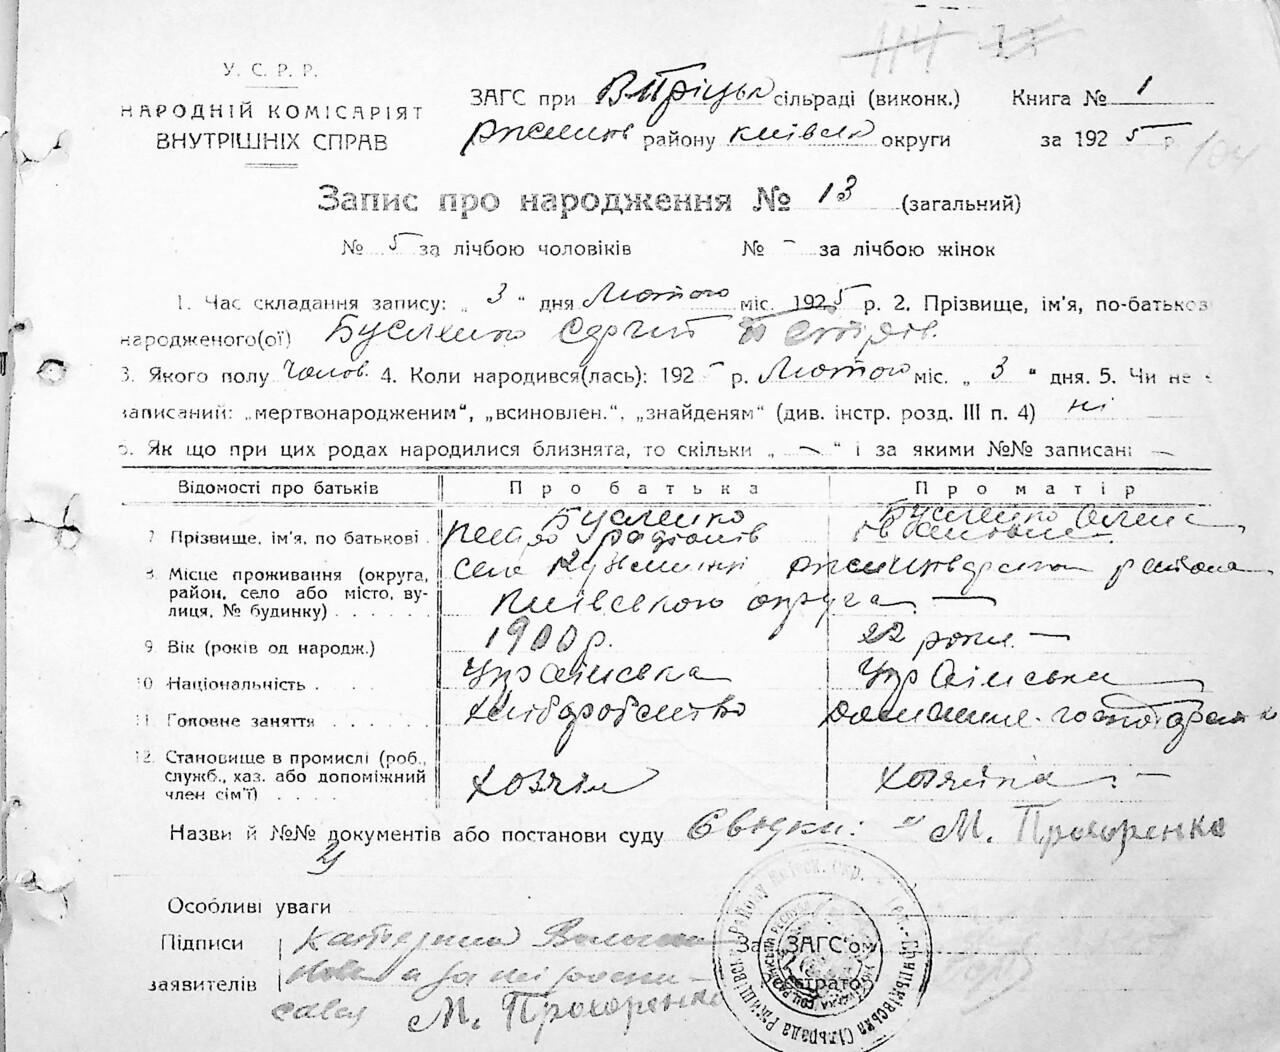 У. С. Р. Р.
НАРОДНІЙ КОМІСАРІЯТ
ВНУТРІШНІХ СПРАВ
ЗАГС при сільраді (виконк.) Книга № 1
району київськ округи за 1925 р.
104
Запис про народження № 13 (загальний)
№ 5 за лічбою чоловіків № - за лічбою жінок
1. Час складання запису: „ 3 “ дня Лютого міс. 1925 р. 2. Прізвище, ім'я, по-батькові
народженого(ої) Бусленко Сергій
3. Якого полу Чолов. 4. Коли народився(лась): 1925 р. Лютого міс. „ 3 “ дня. 5. Чи не є
записаний: „мертвонародженим“, „всиновлен.“, „знайденям“ (див. інстр. розд. III п. 4) ні
6. Як що при цих родах народилися близнята, то скільки „ - “ і за якими №№ записані -
Відомості про батьків Про батька Про матір
7 Прізвище, ім'я, по батькові Бусленко Бусленко Олена
8. Місце проживання (округа, село району
район, село або місто, ву- київського округа
лиця, № будинку)
9. Вік (років од народж.) 1900 р. 22 роки
10. Національність Українська Українська
11. Головне заняття Хліборобство Домашнє господарство
12. Становище в промислі (роб.,
служб., хаз. або допоміжний Хозяїн хозяйка
член сім'ї)
Назви й №№ документів або постанови суду Свідки: М. Прохоренко
Особливі уваги
Підписи Катерина
заявителів а за неї роспи-
салася М. Прохоренко
За ЗАГС'ом